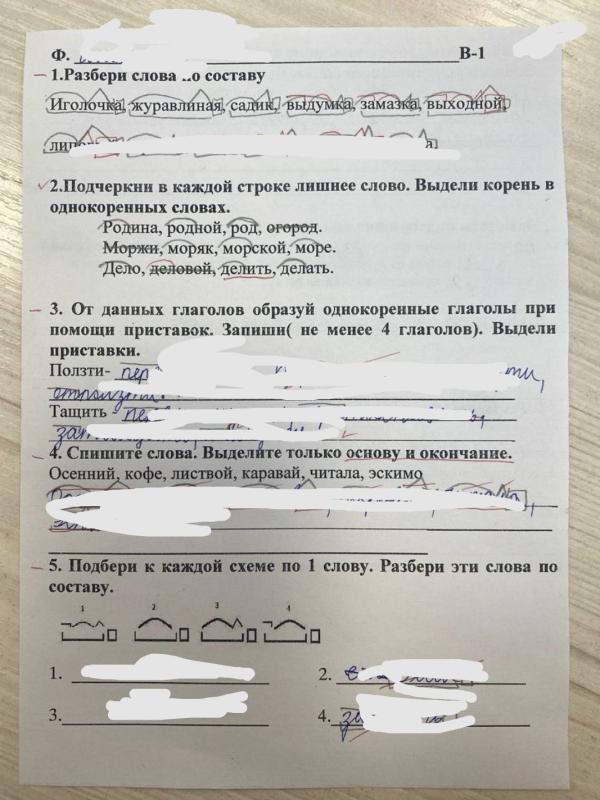 Ф. В-1
1.Разбери слова по составу
Иголочка, журавлиная, садик, выдумка, замазка, выходной,
2.Подчеркни в каждой строке лишнее слово. Выдели корень в
однокоренных словах.
Родина, родной, род, огород.
Моржи, моряк, морской, море.
Дело, деловой, делить, делать.
3. От данных глаголов образуй однокоренные глаголы при
помощи приставок. Запиши( не менее 4 глаголов). Выдели
приставки.
Ползти-
Тащить -
4. Спишите слова. Выделите только основу и окончание.
Осенний, кофе, листвой, каравай, читала, эскимо
5. Подбери к каждой схеме по 1 слову. Разбери эти слова по
составу.
1 2 3 4
1. 2.
3. 4.